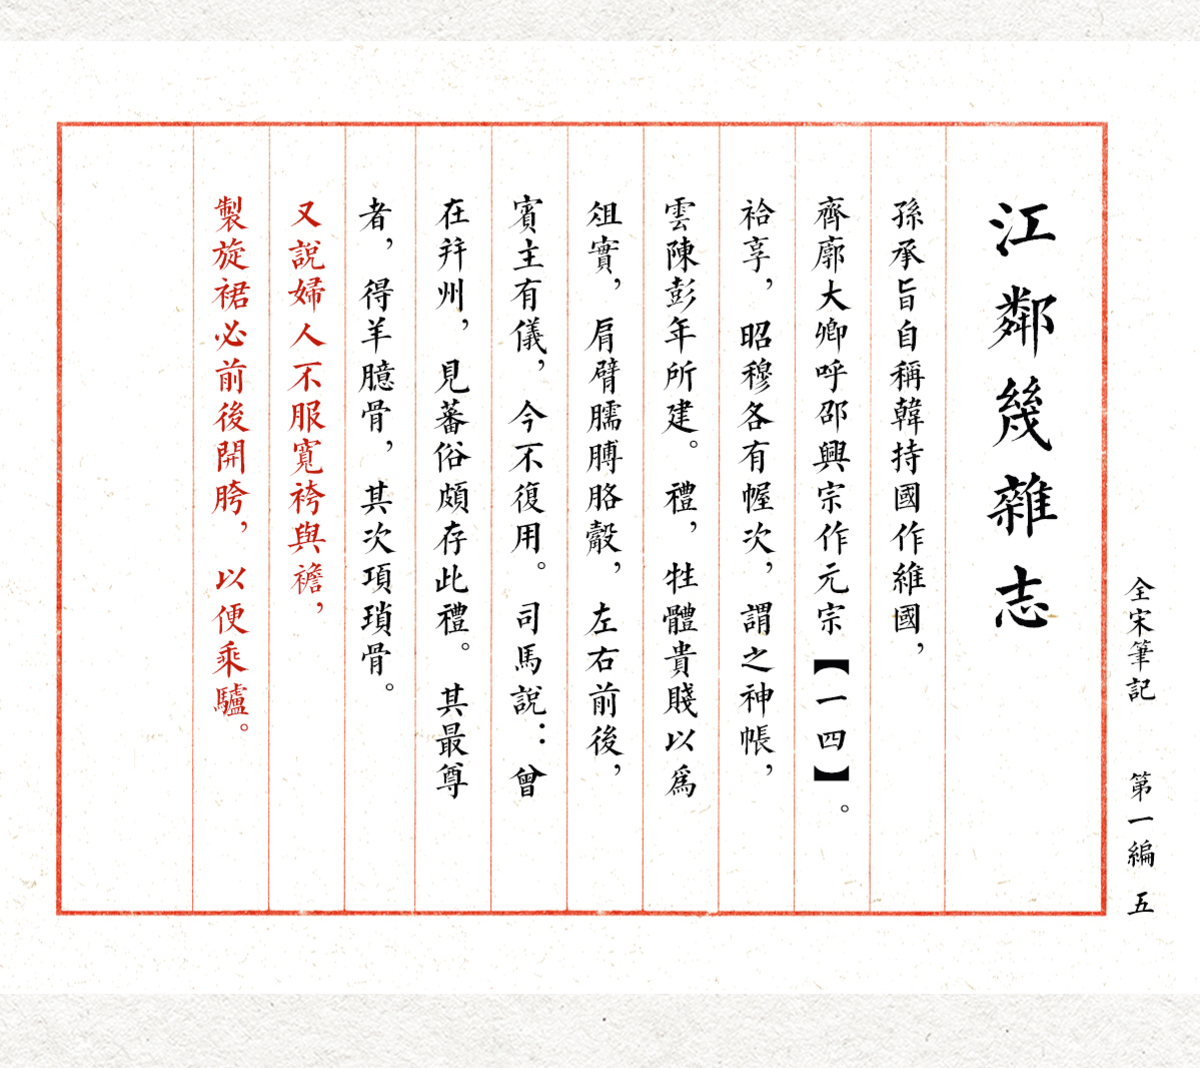 全宋筆記 第一編 五
江鄰幾雜志
孫承旨自稱韓持國作維國，
齊廓大卿呼邵興宗作元宗【一四】。
祫享，昭穆各有幄次，謂之神帳，
雲陳彭年所建。禮，牲體貴賤以爲
俎實，肩臂臑膊胳轂，左右前後，
賓主有儀，今不復用。司馬說：曾
在拜州，見蕃俗頗存此禮。其最尊
者，得羊臆骨，其次項瑣骨。
又說婦人不服寬袴與襜，
製旋裙必前後開胯，以便乘驢。